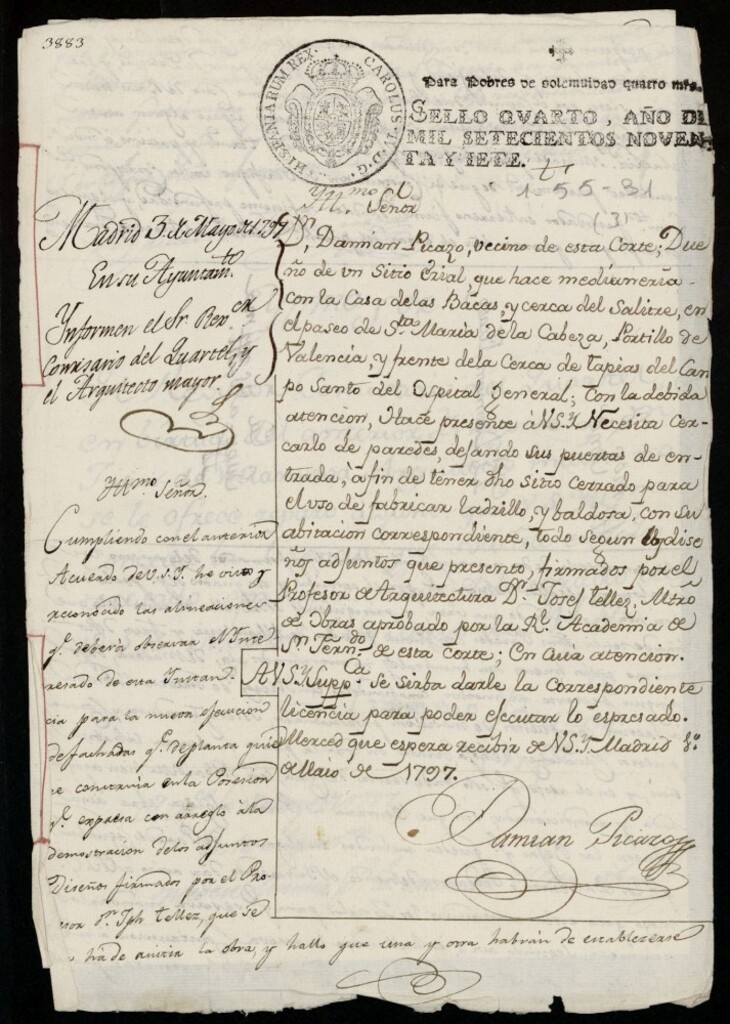 3883
HISPANIARUM REX. CAROLUS IV D.G.
Para Pobres de solemnidad quatro mrs.
SELLO QVARTO, AÑO DE
MIL SETECIENTOS NOVEN
TA Y IETE.
1-55-31
(3)
Yll.mo Señor
Madrid 3 de Mayo de 1797
En su Ayuntam.to
Informen el Sr.
Comisario del Quartel, y
el Arquitecto mayor.
Yll.mo Señor.
Cumpliendo con el anterior
Acuerdo de V.S.Y. he visto y
reconocido las alineaciones
q.e deberá observar el Ynte
resado de esta Ynstan
cia para la nueva ejecucion
de fachadas q.e de planta quie
re construir en la Posesion
q.e expresa con arreglo à la
demostracion de los adjuntos
Diseños firmados por el Pro
sor D.n Jph tellez, que se
ha de la obra, y hallo que una y otra habrán de establecerse
D.n Damian Picazo, vecino de esta Corte; Due
ño de un Sitio Erial, que hace medianeria
con la Casa de las Bacas, y cerca del Salitre, en
el paseo de S.ta Maria de la Cabeza, Portillo de
Valencia, y frente de la Cerca de tapias del Can
po Santo del Ospital General; Con la debida
atencion, Hace presente à V.S.Y. Necesita Cer
carlo de paredes, dejando sus puertas de en
trada, à fin de tener dho sitio cerrado para
el uso de fabricar ladrillo, y baldosa, con su
abitacion correspondiente, todo segun los dise
ños adjuntos que presento, firmados por el
Profesor de Arquitectura D.n Josef tellez, Mtrõ
de Obras aprobado por la R.l Academia de
S.n Fern.do de esta Corte; En cuia atencion.
A V.S.Y. Supp.ca se sirba darle la Correspondiente
licencia para poder ejecutar lo espresado.
Merced que espera recibir de V.S.Y. Madrid
de Maio de 1797.
Damian Picazo